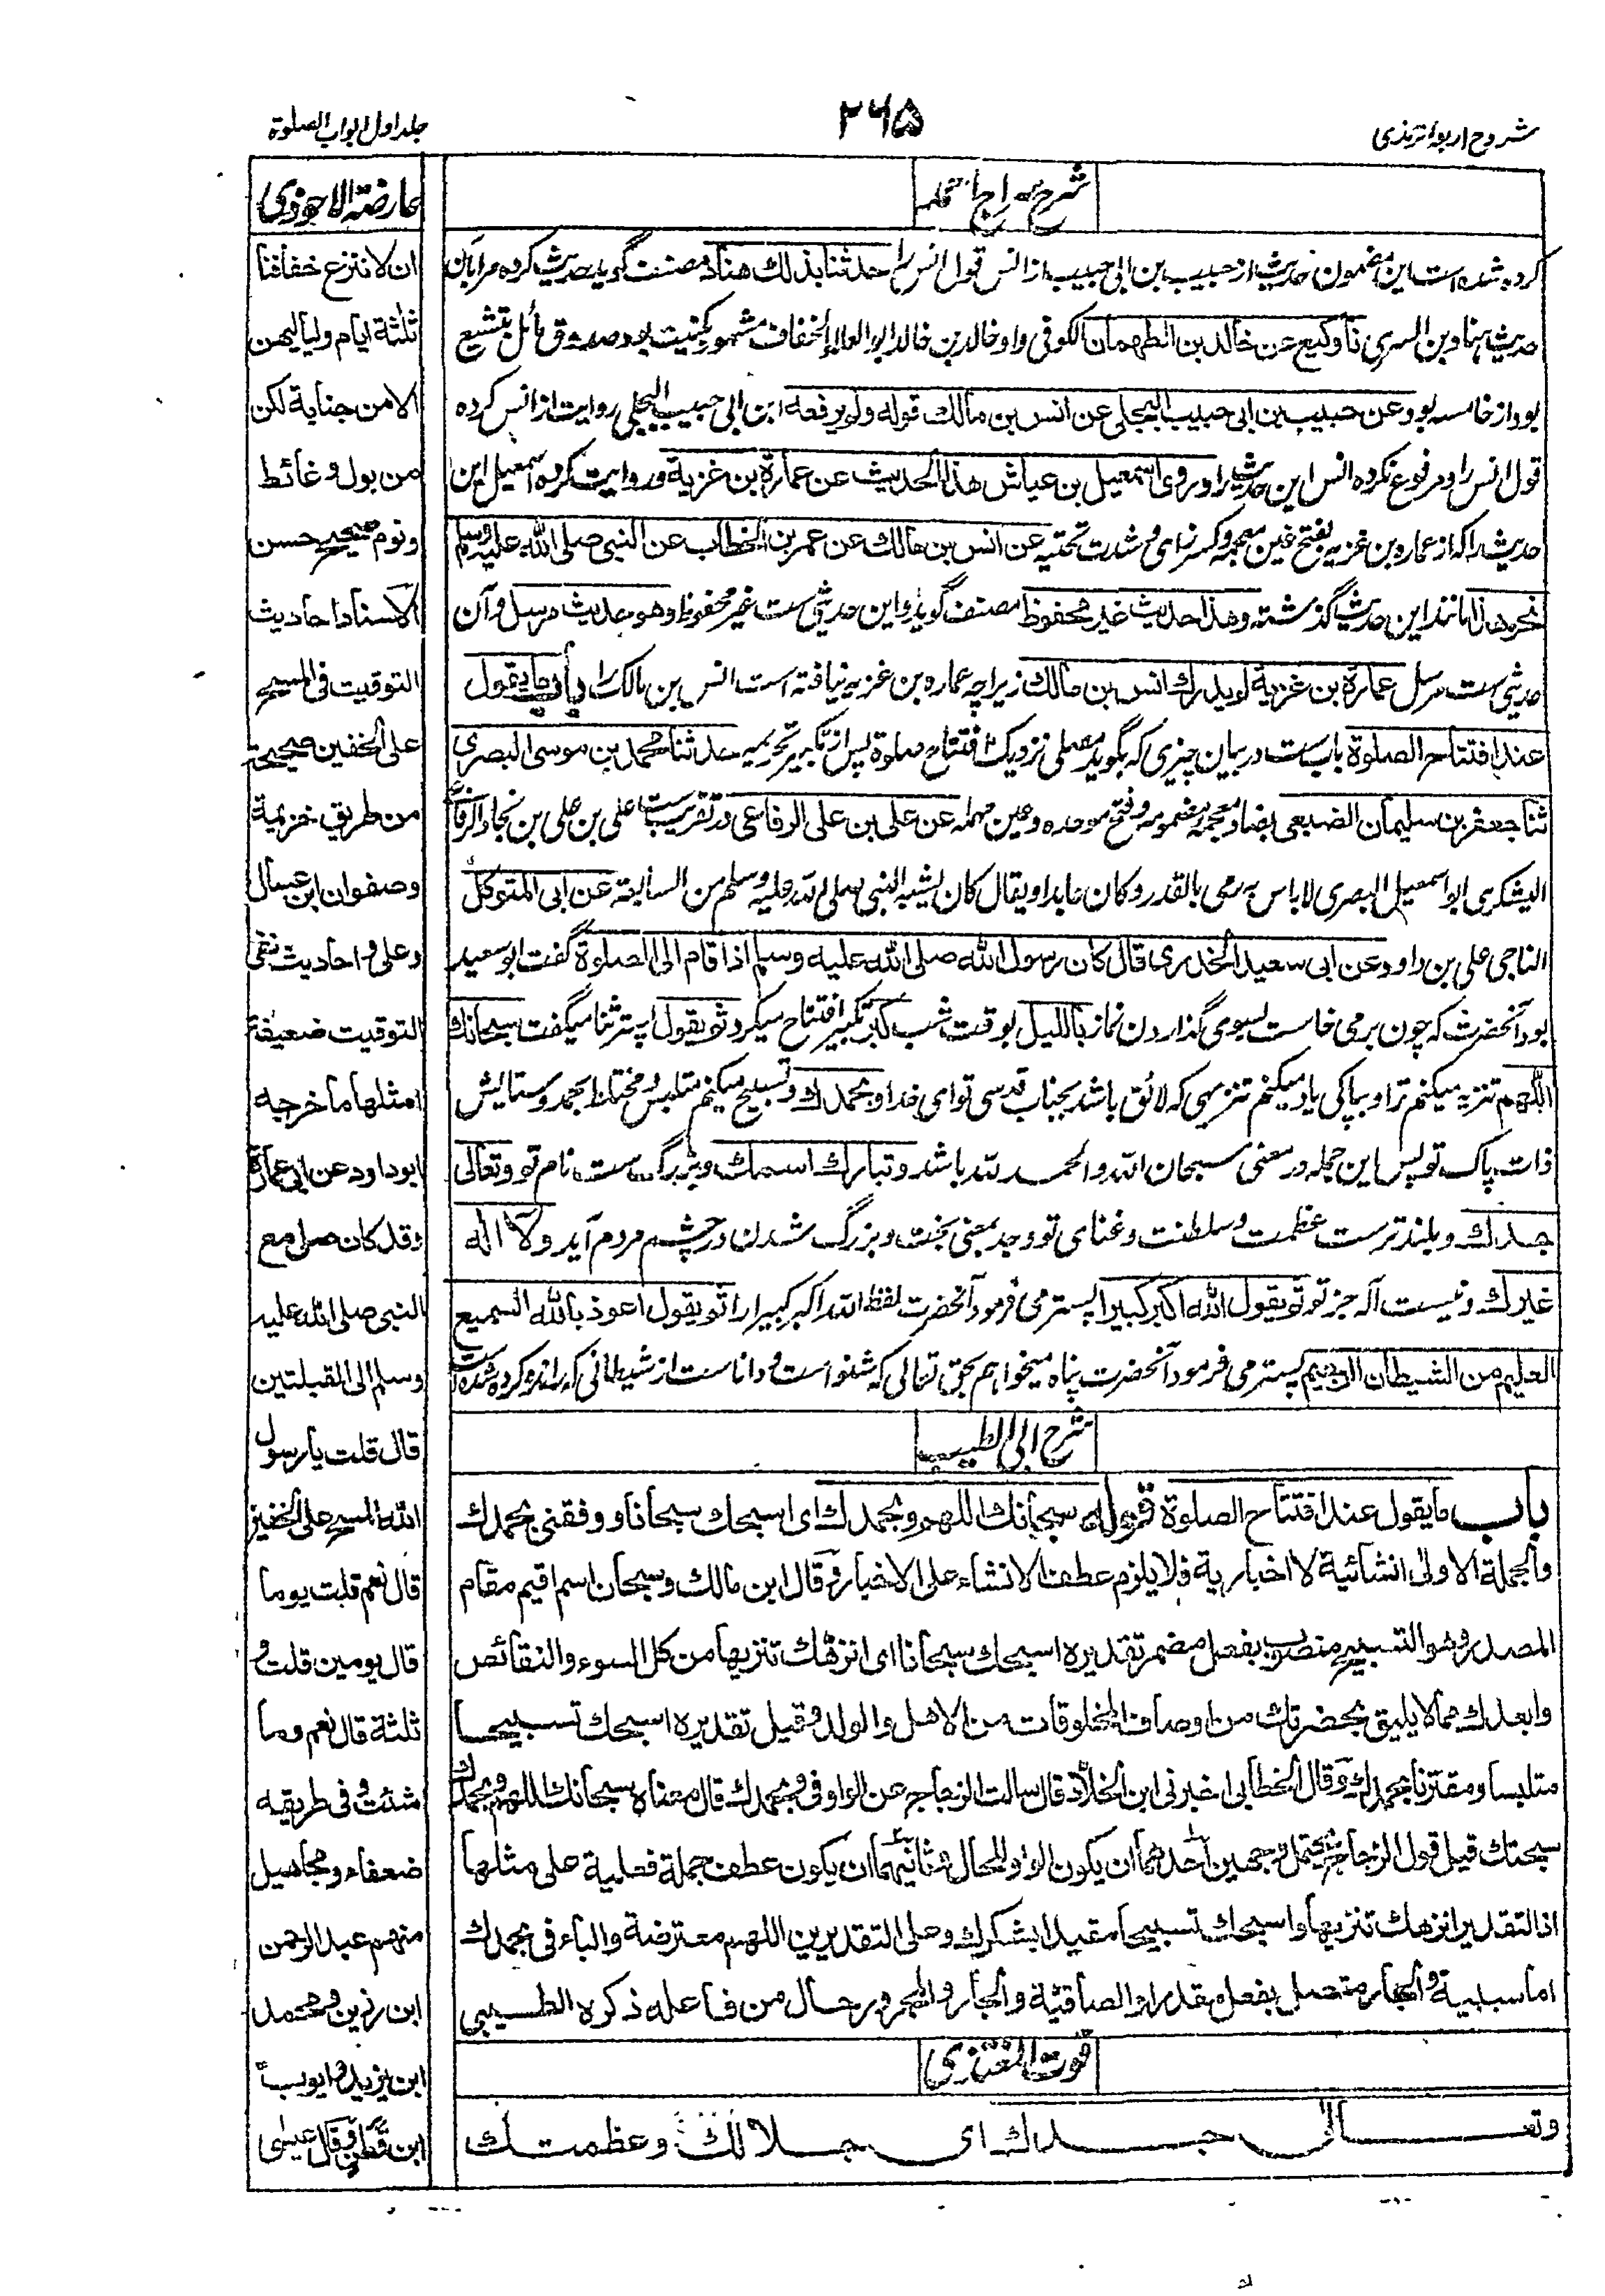 شروح اربعه ترمذی
۲۶۵
جلد اول ابواب الصلوة
شرح سراج احمد
کرده شده است این مضمون حدیث از حبیب بن ابی حبیب از انس قول انس را حدثنا بذلك هناد مصنف گوید حدیث کرده مرا باین
حدیث هناد بن السری نا وكيع عن خالد بن الطهمان الکوفی و او خالد بن خالد ابو العلاء الخفاف مشهور بکنیت بود صدوق مائل بتشیع
بود از خامسه بود عن حبیب بن ابی حبیب البجلی عن انس بن مالك قوله ولم يرفعه ابن ابی حبیب البجلی روایت از انس کرده
قول انس را و مرفوع نکرده انس این حدیث را وروی اسمعیل بن عیاش هذا الحدیث عن عمارة بن غزية و روایت کرده اسمعیل این
حدیث را که از عماره بن غزیه بفتح غین معجمه و کسر زای و شدت تحتیه عن انس بن مالك عن عمر بن الخطاب عن النبی صلی الله علیه وسلم
نحو هذا مانند این حدیث گذشته وهذا حدیث غیر محفوظ مصنف گوید و این حدیثی ست غیر محفوظ وهو حدیث مرسل و آن
حدیثی ست مرسل عمارة بن غزية لم يدرك انس بن مالك زیرا چه عماره بن غزیه نیافته است انس بن مالک را باب ما يقول
عند افتتاح الصلوة باب ست در بیان چیزی که بگوید مصلی نزدیک افتتاح صلوة پس از تکبیر تحریمه حدثنا محمد بن موسی البصری
ثنا جعفر بن سلیمان الضبعی بضاد معجمه مضمومه و فتح موحده و عین مهمله عن علی بن علی الرفاعی در تقریب ست علی بن علی بن نجاد الرفاعی
الیشکری ابو اسمعیل البصری لا باس به رمی بالقدر و کان عابدا و یقال کان یشبه النبی صلی الله علیه وسلم من السابعة عن ابی المتوکل
الناجی علی بن داود عن ابی سعید الخدری قال کان رسول الله صلی الله علیه وسلم اذا قام الی الصلوة گفت ابو سعید
بود آنحضرت که چون بر می خاست بسوی گذاردن نماز باللیل بوقت شب کبر تکبیر افتتاح میکرد ثم یقول پستر ثنا میگفت سبحانك
اللهم تنزیه میکنم ترا و بپاکی یاد میکنم تنزیهی که لائق باشد بجناب قدسی تو ای خدا وبحمدك و تسبیح میکنم متلبس و مختلط بحمد و ستایش
ذات پاک تو پس این جمله در معنی سبحان الله و الحمد لله باشد وتبارك اسمك و بزرگ ست نام تو وتعالی
جدك و بلند ترست عظمت و سلطنت و غنای تو و جد بمعنی بخت و بزرگ شدن در چشم مردم آید ولا اله
غیرك و نیست اله جز تو ثم یقول الله اکبر کبیرا پستر می فرمود آنحضرت لفظ الله اکبر کبیرا را ثم یقول اعوذ بالله السمیع
العلیم من الشیطان الرجیم پستر می فرمود آنحضرت پناه میخواهم بحق تعالی که شنوا است و دانا ست از شیطانی که رانده کرده شده است
شرح ابی الطیب
باب ما يقول عند افتتاح الصلوة قوله سبحانك اللهم وبحمدك ای اسبحك سبحانا ووفقنی بحمدك
والجملة الاولی انشائية لا اخبارية فلا يلزم عطف الانشاء على الاخبار وقال ابن مالك وسبحان اسم اقيم مقام
المصدر وهو التسبيح منصوب بفعل مضمر تقديره اسبحك سبحانا ای انزهك تنزيها من كل السوء والنقائص
وابعدك مما لا يليق بحضرتك من اوصاف المخلوقات من الاهل والولد وقيل تقديره اسبحك تسبيحا
متلبسا ومقترنا بحمدك وقال الخطابی اخبرنی ابن الخلاد قال سالت الزجاج عن الواو فی وبحمدك قال معناه سبحانك اللهم وبحمدك
سبحتك قيل قول الزجاج يحتمل وجهين احدهما ان يكون الواو للحال وثانيهما ان يكون عطف جملة فعلية على مثلها
اذ التقدير انزهك تنزيها واسبحك تسبيحا مقيدا بشكرك وعلى التقديرين اللهم معترضة والباء فی بحمدك
اما سببية والجار متصل بفعل مقدر او الصاقية والجار والمجرور حال من فاعله ذكره الطيبی
قوت المغتذی
وتعالی جدك ای جلالك وعظمتك
عارضة الاحوذی
ان لا ننزع خفافنا
ثلثة ايام ولياليهن
الا من جنابة لكن
من بول وغائط
ونوم صحيح حسن
الاسناد احاديث
التوقيت فی المسح
على الخفين صحيحة
من طريق خزيمة
وصفوان ابن عسال
وعلی و احاديث نفی
التوقيت ضعيفة
امثلها ما خرجه
ابو داود عن ابی عمارة
وقد كان صلى مع
النبی صلى الله عليه
وسلم الى القبلتين
قال قلت يا رسول
الله المسح على الخفين
قال نعم قلت يوما
قال يومين قلت و
ثلثة قال نعم وما
شئت وفی طريقه
ضعفاء ومجاهيل
منهم عبد الرحمن
ابن رزين ومحمد
ابن يزيد وايوب
ابن قطن وقال عيسى